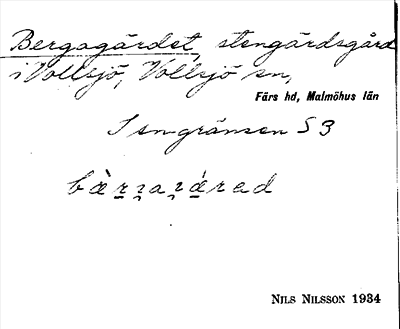 Bergagärdet, stengärdsgård
i Vollsjö, Vollsjö sn,
Färs hd, Malmöhus län
I sngränsen S 3
NILS NILSSON 1934